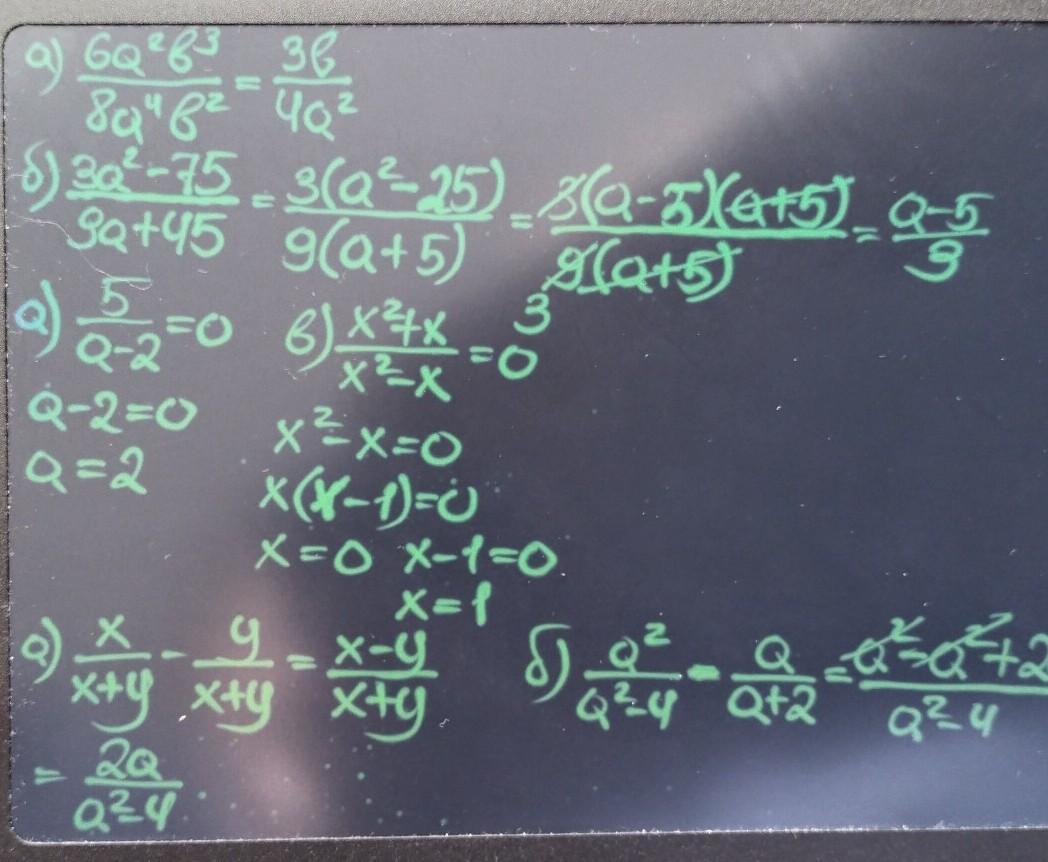 а) 6a²b³/8a⁴b² = 3b/4a²
б) 3a²-75/9a+45 = 3(a²-25)/9(a+5) = 3(a-5)(a+5)/9(a+5) = a-5/3
3
а) 5/a-2 =0 в) x²+x/x²-x =0
a-2=0 x²-x=0
a=2 x(x-1)=0
x=0 x-1=0
x=1
а) x/x+y - y/x+y = x-y/x+y б) a²/a²-4 - a/a+2 = a²-a²+2/a²-4
= 2a/a²-4